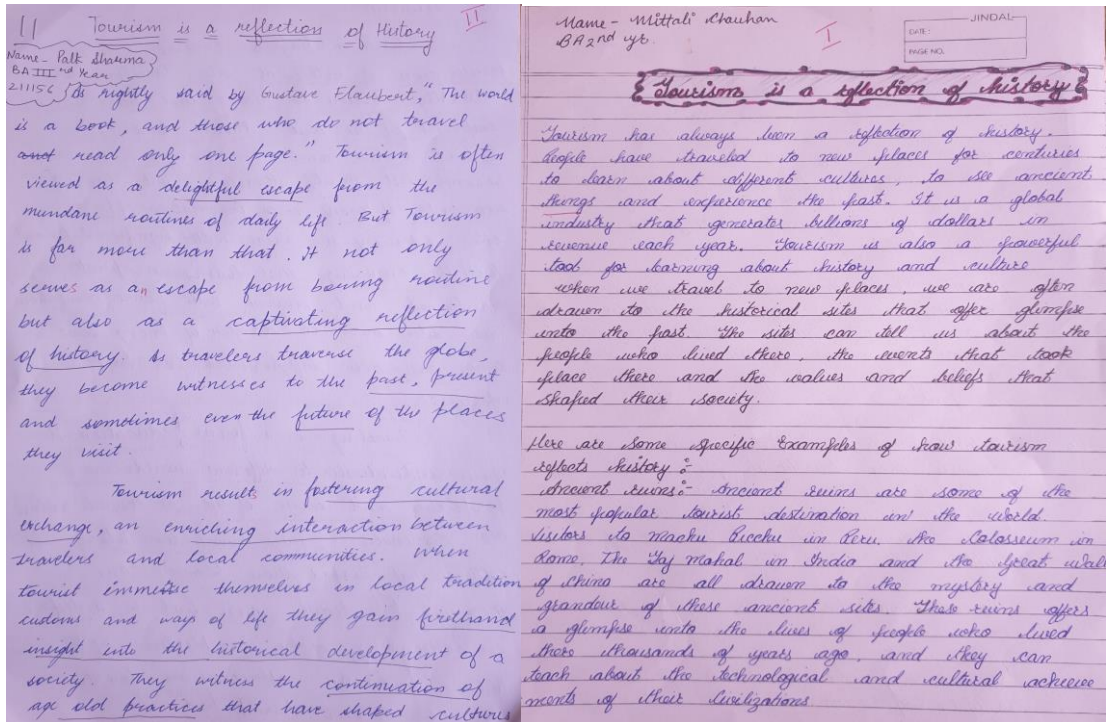 11 Tourism is a reflection of History
II
Name - Palk Sharma
BA III nd Year
211156
As rightly said by Gustave Flaubert, "The world
is a book, and those who do not travel
read only one page." Tourism is often
viewed as a delightful escape from the
mundane routines of daily life. But Tourism
is far more than that. It not only
serves as an escape from boring routine
but also as a captivating reflection
of history. As travelers traverse the globe,
they become witnesses to the past, present
and sometimes even the future of the places
they visit.
Tourism results in fostering cultural
exchange, an enriching interaction between
travelers and local communities. When
tourist immerse themselves in local tradition
customs and ways of life they gain firsthand
insight into the historical development of a
society. They witness the continuation of
age old practices that have shaped cultures
Name - Mittali Chauhan
BA 2nd yr.
I
JINDAL
DATE:
PAGE NO.
Tourism is a reflection of history
Tourism has always been a reflection of history.
People have traveled to new places for centuries
to learn about different cultures, to see ancient
things and experience the past. It is a global
industry that generates billions of dollars in
revenue each year. Tourism is also a powerful
tool for learning about history and culture
when we travel to new places, we are often
drawn to the historical sites that offer glimpse
into the past. The sites can tell us about the
people who lived there, the events that took
place there and the values and beliefs that
shaped their society.
Here are some specific examples of how tourism
reflects history :-
Ancient ruins:- Ancient ruins are some of the
most popular tourist destination in the world.
Visitors to machu Picchu in Peru, the Colosseum in
Rome, The Taj Mahal in India and the Great Wall
of China are all drawn to the mystery and
grandour of these ancient sites. These ruins offers
a glimpse into the lives of people who lived
there thousands of years ago, and they can
teach about the technological and cultural achieve
ments of their civilizations.